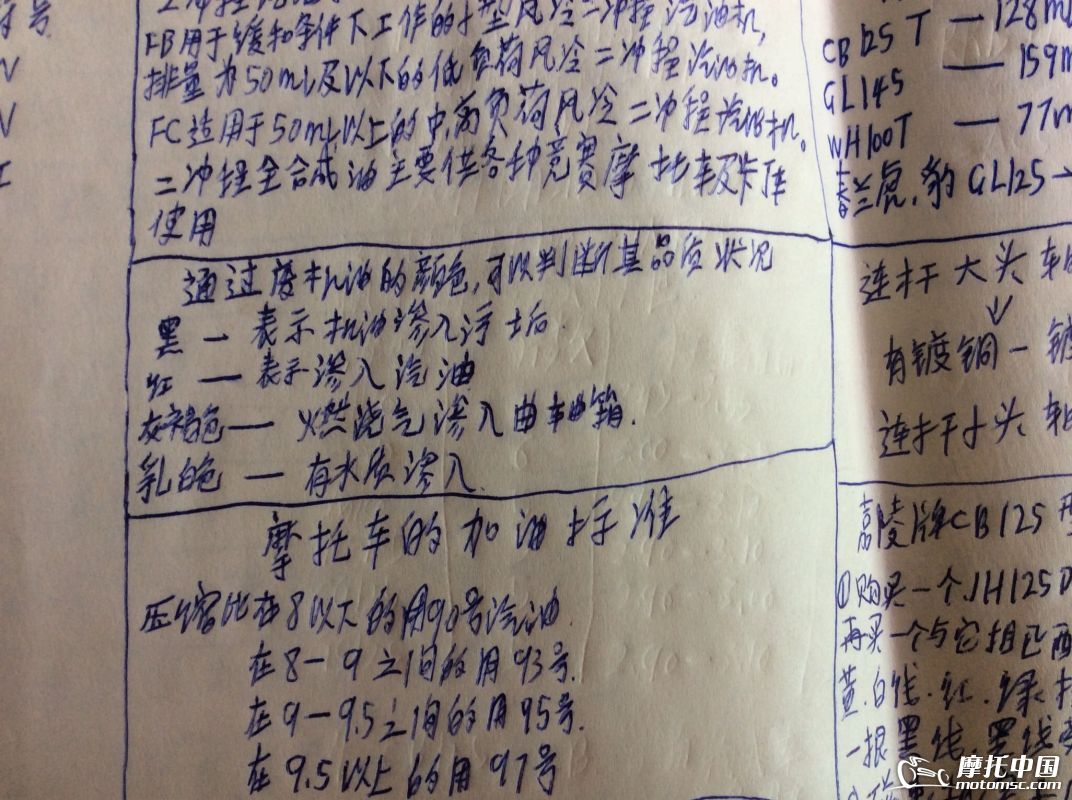 FB用于缓和条件下工作的小型风冷二冲程汽油机,
排量为50mL及以下的低负荷风冷二冲程汽油机。
FC适用于50mL以上的中,高负荷风冷二冲程汽油机。
二冲程全合成油主要供各种竞赛摩托车及卡丁车
使用
通过废机油的颜色,可以判断其品质状况
黑 — 表示机油渗入浮垢.
红 — 表示渗入汽油
灰褐色 — 燃烧气渗入曲轴箱.
乳白色 — 有水质渗入.
摩托车的加油标准
压缩比在8以下的用90号汽油.
在8-9之间的用93号.
在9-9.5之间的用95号.
在9.5以上的用97号
— 128m
CB125T — 159m
GL145
WH100T — 77m
春兰虎,豹GL125 —
连杆大头轴
有镀铜 — 镀
连杆小头轴
嘉陵牌CB125型
①购买一个JH125
再买一个与它相匹配
黄.白线.红.绿
一根黑线.黑线
摩托中国
motomsc.com